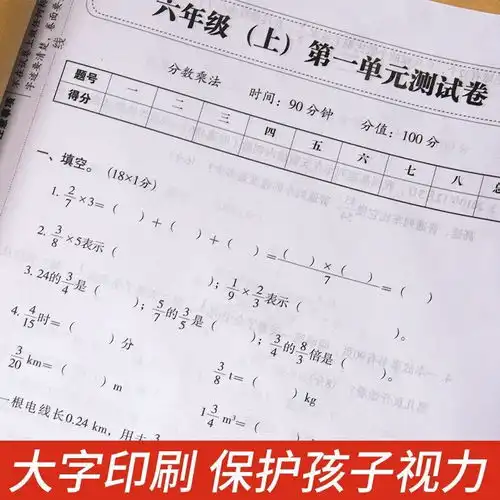 六年级（上）第一单元测试卷
分数乘法 时间：90分钟 分值：100分
题号 一 二 三 四 五 六 七 八 总
得分
一、填空。（18×1分）
1. 2/7×3=（ ）+（ ）+（ ）=（ ）×（ ）/7=（ ）
2. 3/8×5表示（ ）；1/9×2/3表示（ ）。
3. 24的3/4是（ ）；5/7的3/5是（ ）；3/4的8/3倍是（ ）。
4. 4/15时=（ ）分 3/8 t=（ ）kg
3/20 km=（ ）m 1 3/4 m³=（
一根电线长0.24 km，用去3
大字印刷 保护孩子视力